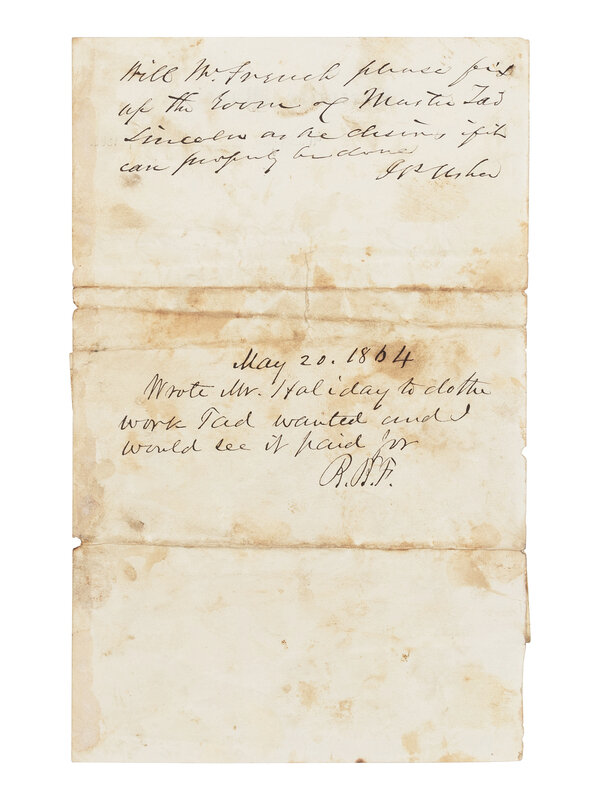 Will Mr French please fix
up the room of Master Tad
Lincoln as he desires if it
can properly be done
J P Usher
May 20. 1864
Wrote Mr. Haliday to do the
work Tad wanted and I
would see it paid for
B.B.F.